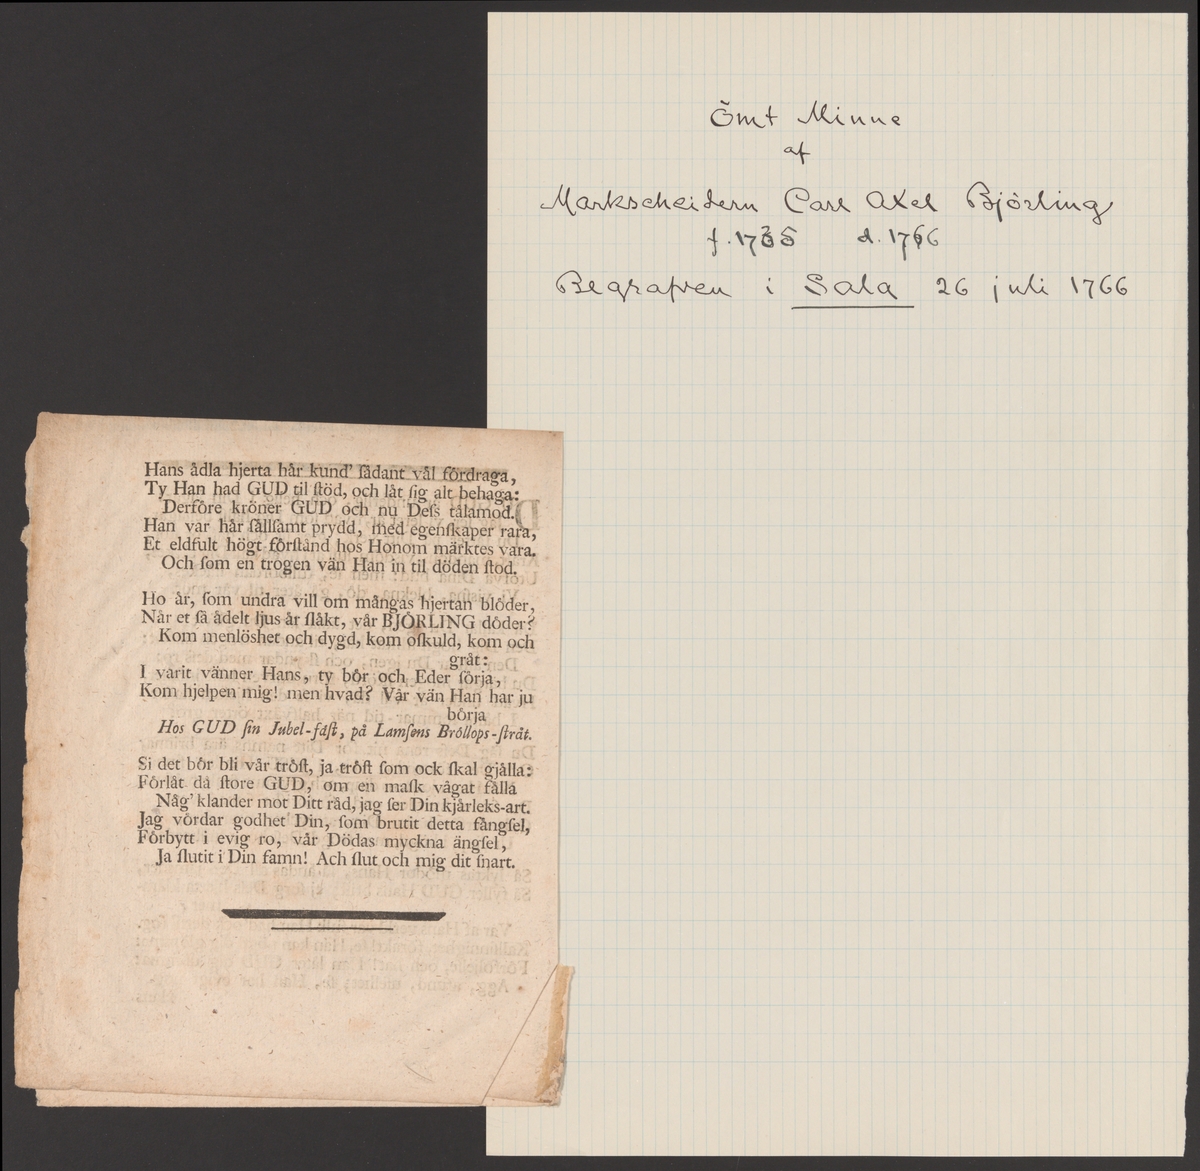 Ömt Minne
af
Markscheidern Carl Axel Björling
f. 1735 d. 1766
Begrafven i Sala 26 juli 1766
Hans ådla hjerta hår kund' ſådant vål fördraga,
Ty Han had GUD til ſtöd, och låt ſig alt behaga:
Derföre kröner GUD och nu Deſs tålamod.
Han var hår ſållſamt prydd, med egenſkaper rara,
Et eldfult högt förſtånd hos Honom märktes vara.
Och ſom en trogen vän Han in til döden ſtod.
Ho år, ſom undra vill om mångas hjertan blöder,
Når et ſå ådelt ljus år ſlåkt, vår BJÖRLING döder?
Kom menlöshet och dygd, kom oſkuld, kom och
gråt:
I varit vänner Hans, ty bör och Eder ſörja,
Kom hjelpen mig! men hvad? Vår vän Han har ju
börja
Hos GUD ſin Jubel-fåſt, på Lamſens Bröllops-ſtråt.
Si det bör bli vår tröſt, ja tröſt ſom ock ſkal gjålla:
Förlåt då ſtore GUD, om en maſk vågat fålla
Någ' klander mot Ditt råd, jag ſer Din kjårleks-art.
Jag vördar godhet Din, ſom brutit detta fångſel,
Förbytt i evig ro, vår Dödas myckna ängſel,
Ja ſlutit i Din famn! Ach ſlut och mig dit ſnart.